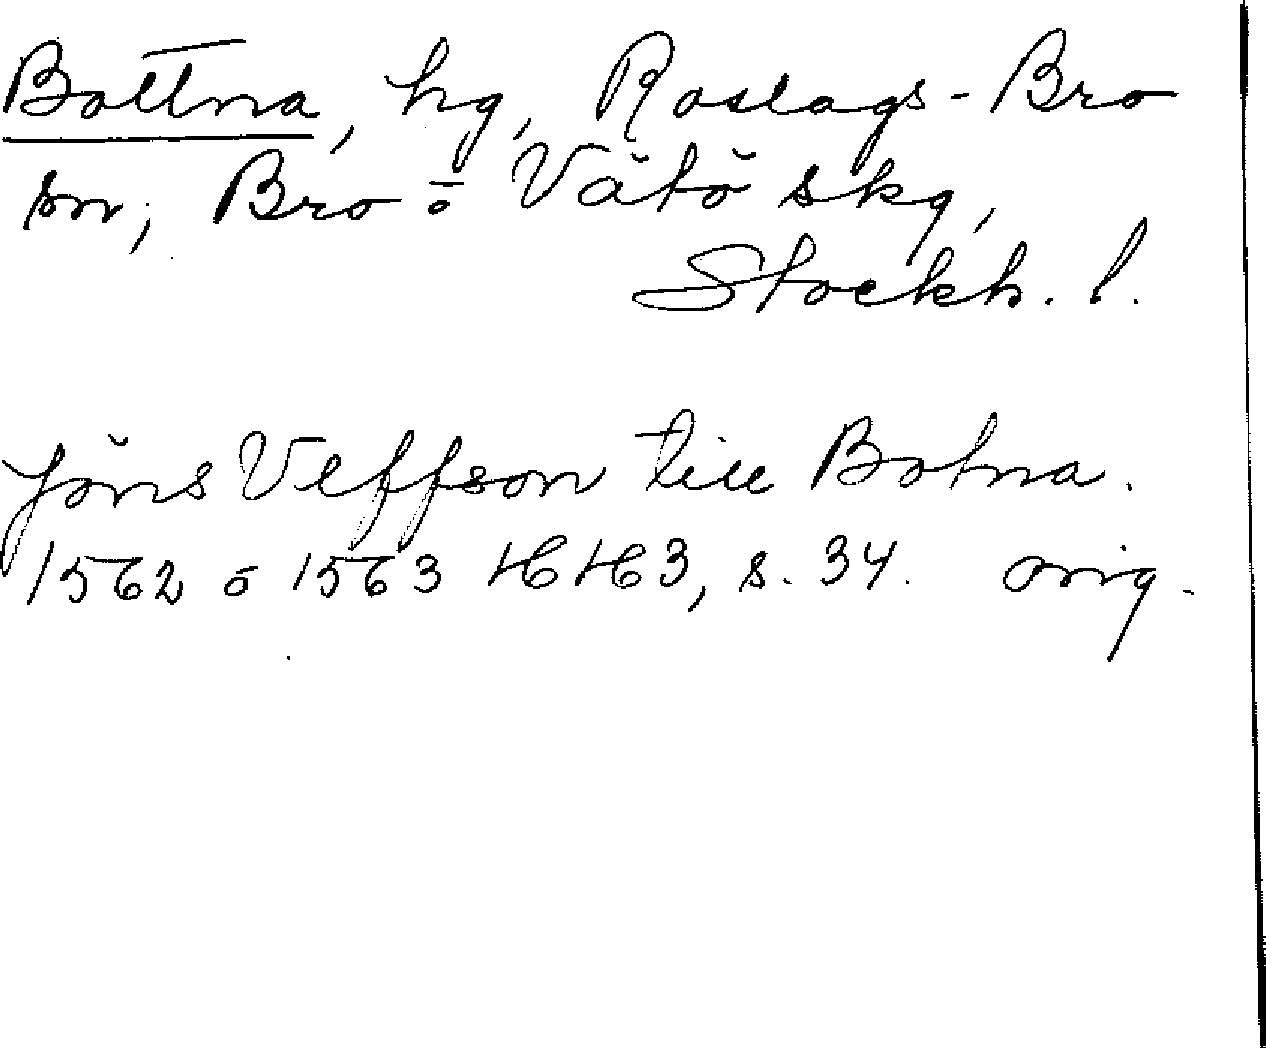 Bottna, hg, Roslags-Bro
sn, Bro o Vätö skg,
Stockh. l.
Jöns Veffson till Botna.
1562 o 1563 HH3, s. 34. orig.